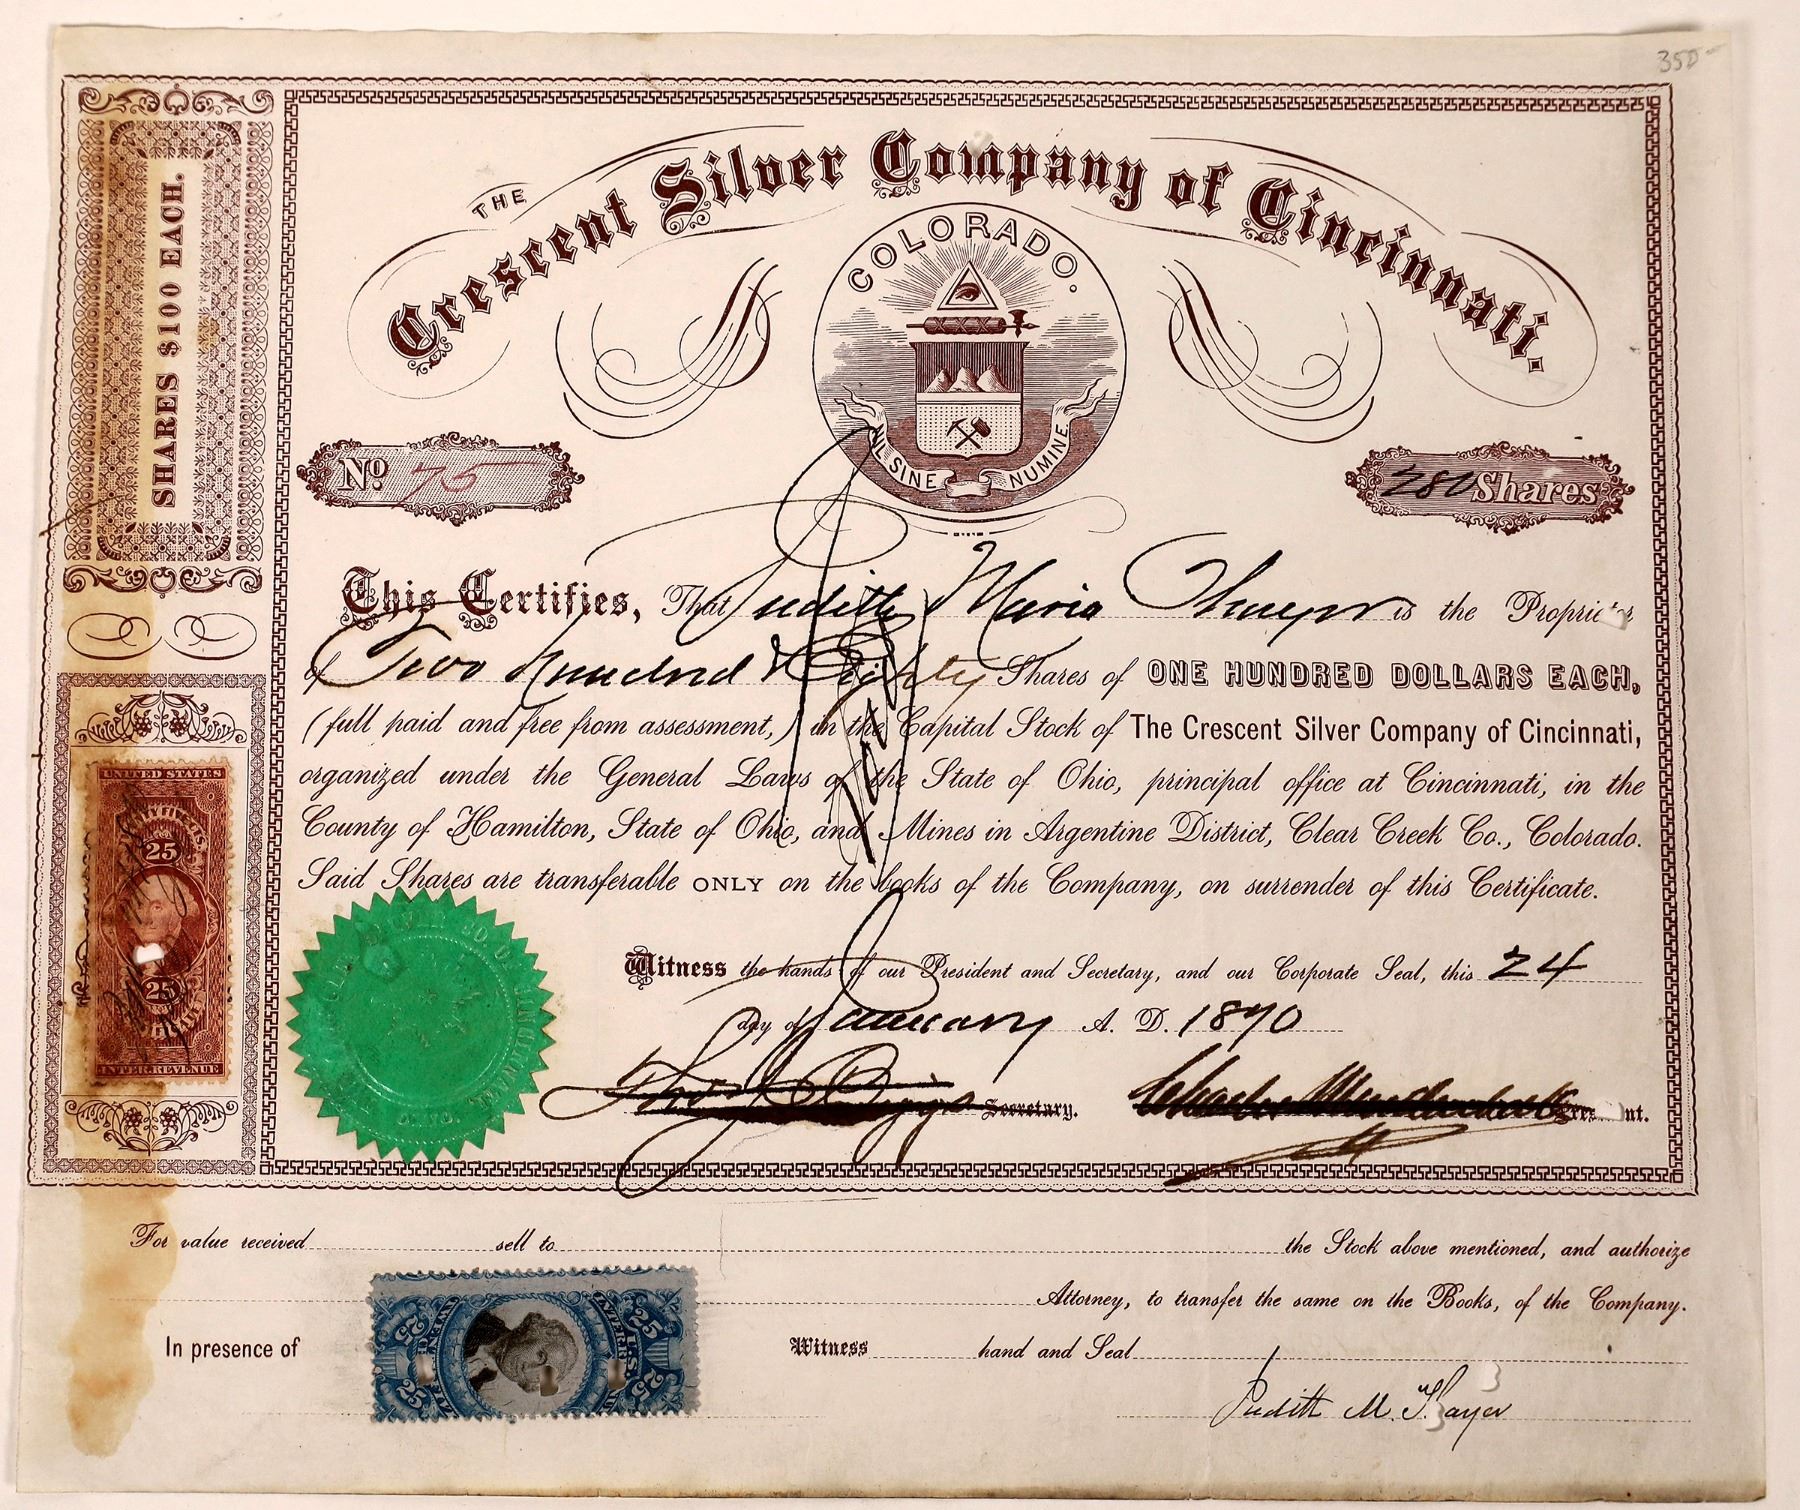 350-
SHARES $100 EACH.
THE
Crescent Silver Company of Cincinnati.
COLORADO.
NIL SINE NUMINE
No 75
280 Shares
This Certifies, That Judith Maria Thayer is the Proprietor
of Two Hundred & Eighty Shares of ONE HUNDRED DOLLARS EACH,
(full paid and free from assessment,) in the Capital Stock of The Crescent Silver Company of Cincinnati,
organized under the General Laws of the State of Ohio, principal office at Cincinnati, in the
County of Hamilton, State of Ohio, and Mines in Argentine District, Clear Creek Co., Colorado.
Said Shares are transferable ONLY on the books of the Company, on surrender of this Certificate.
UNITED STATES
25
25
INTER. REVENUE
Witness the hands of our President and Secretary, and our Corporate Seal, this 24
day of January A. D. 1870
Secretary.
For value received sell to the Stock above mentioned, and authorize
Attorney, to transfer the same on the Books, of the Company.
In presence of
25
25
25
Witness hand and Seal
Judith M. Thayer